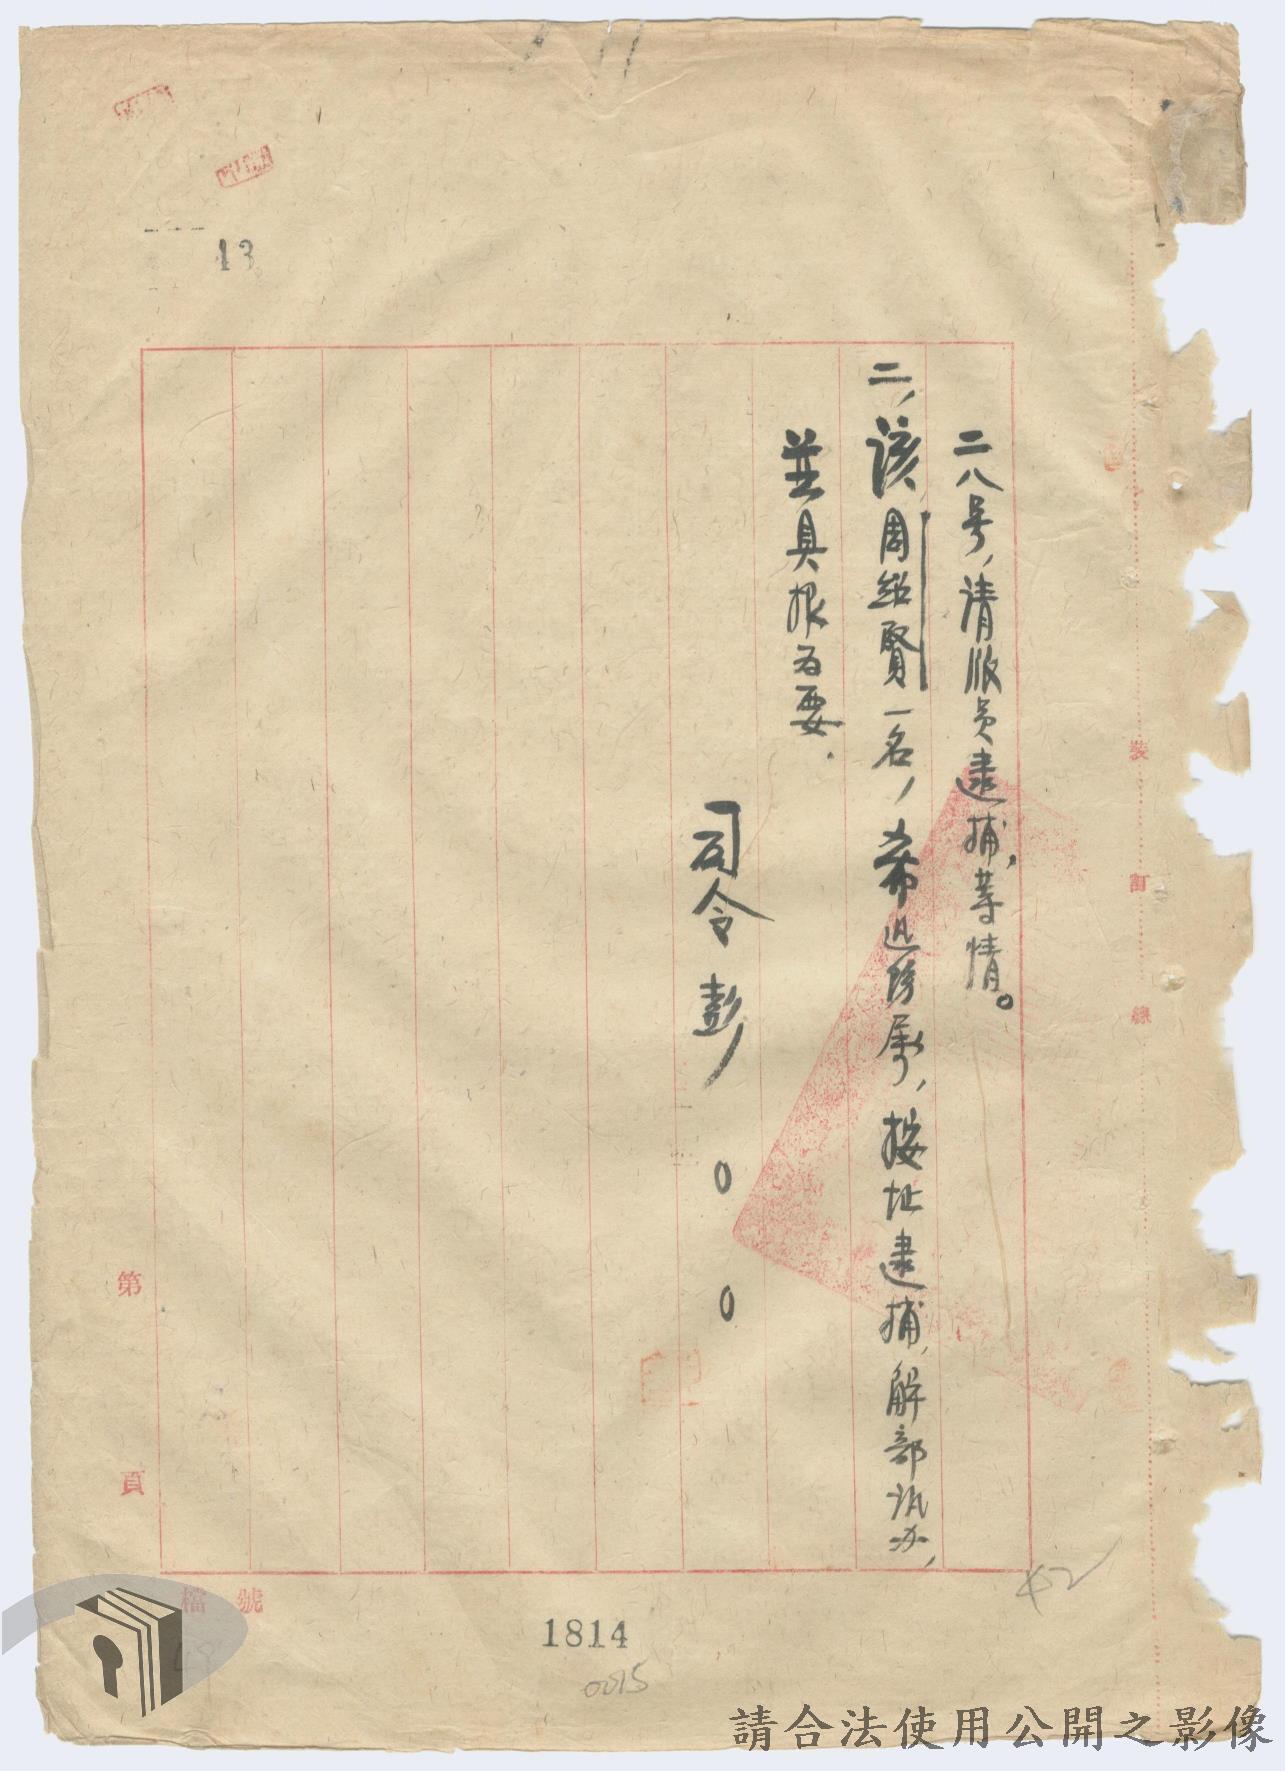 二八号，请派员逮捕，等情。
二、该周紹賢一名，希迅饬属，按址逮捕，解部讯办，
並具报为要．
司令彭００
裝
訂
線
13
第
頁
檔
號
1814
0015
42
請合法使用公開之影像